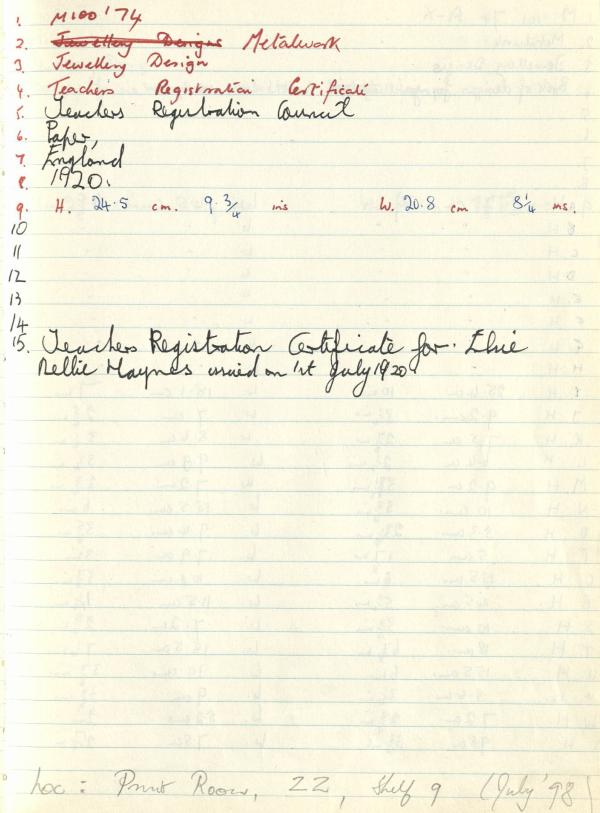 1. M100'74
2. Jewellery Designs Metalwork
3. Jewellery Design
4. Teachers Registration Certificate
5. Teachers Registration Council
6. Paper,
7. England
8. 1920.
9. H. 24.5 cm. 9 3/4 ins W. 20.8 cm 8 1/4 ins.
10
11
12
13
14
15. Teachers Registration Certificate for. Elsie
Nellie Haynes issued on 1st July 1920.
Loc: Print Room, 22, Shelf 9 (July '98)